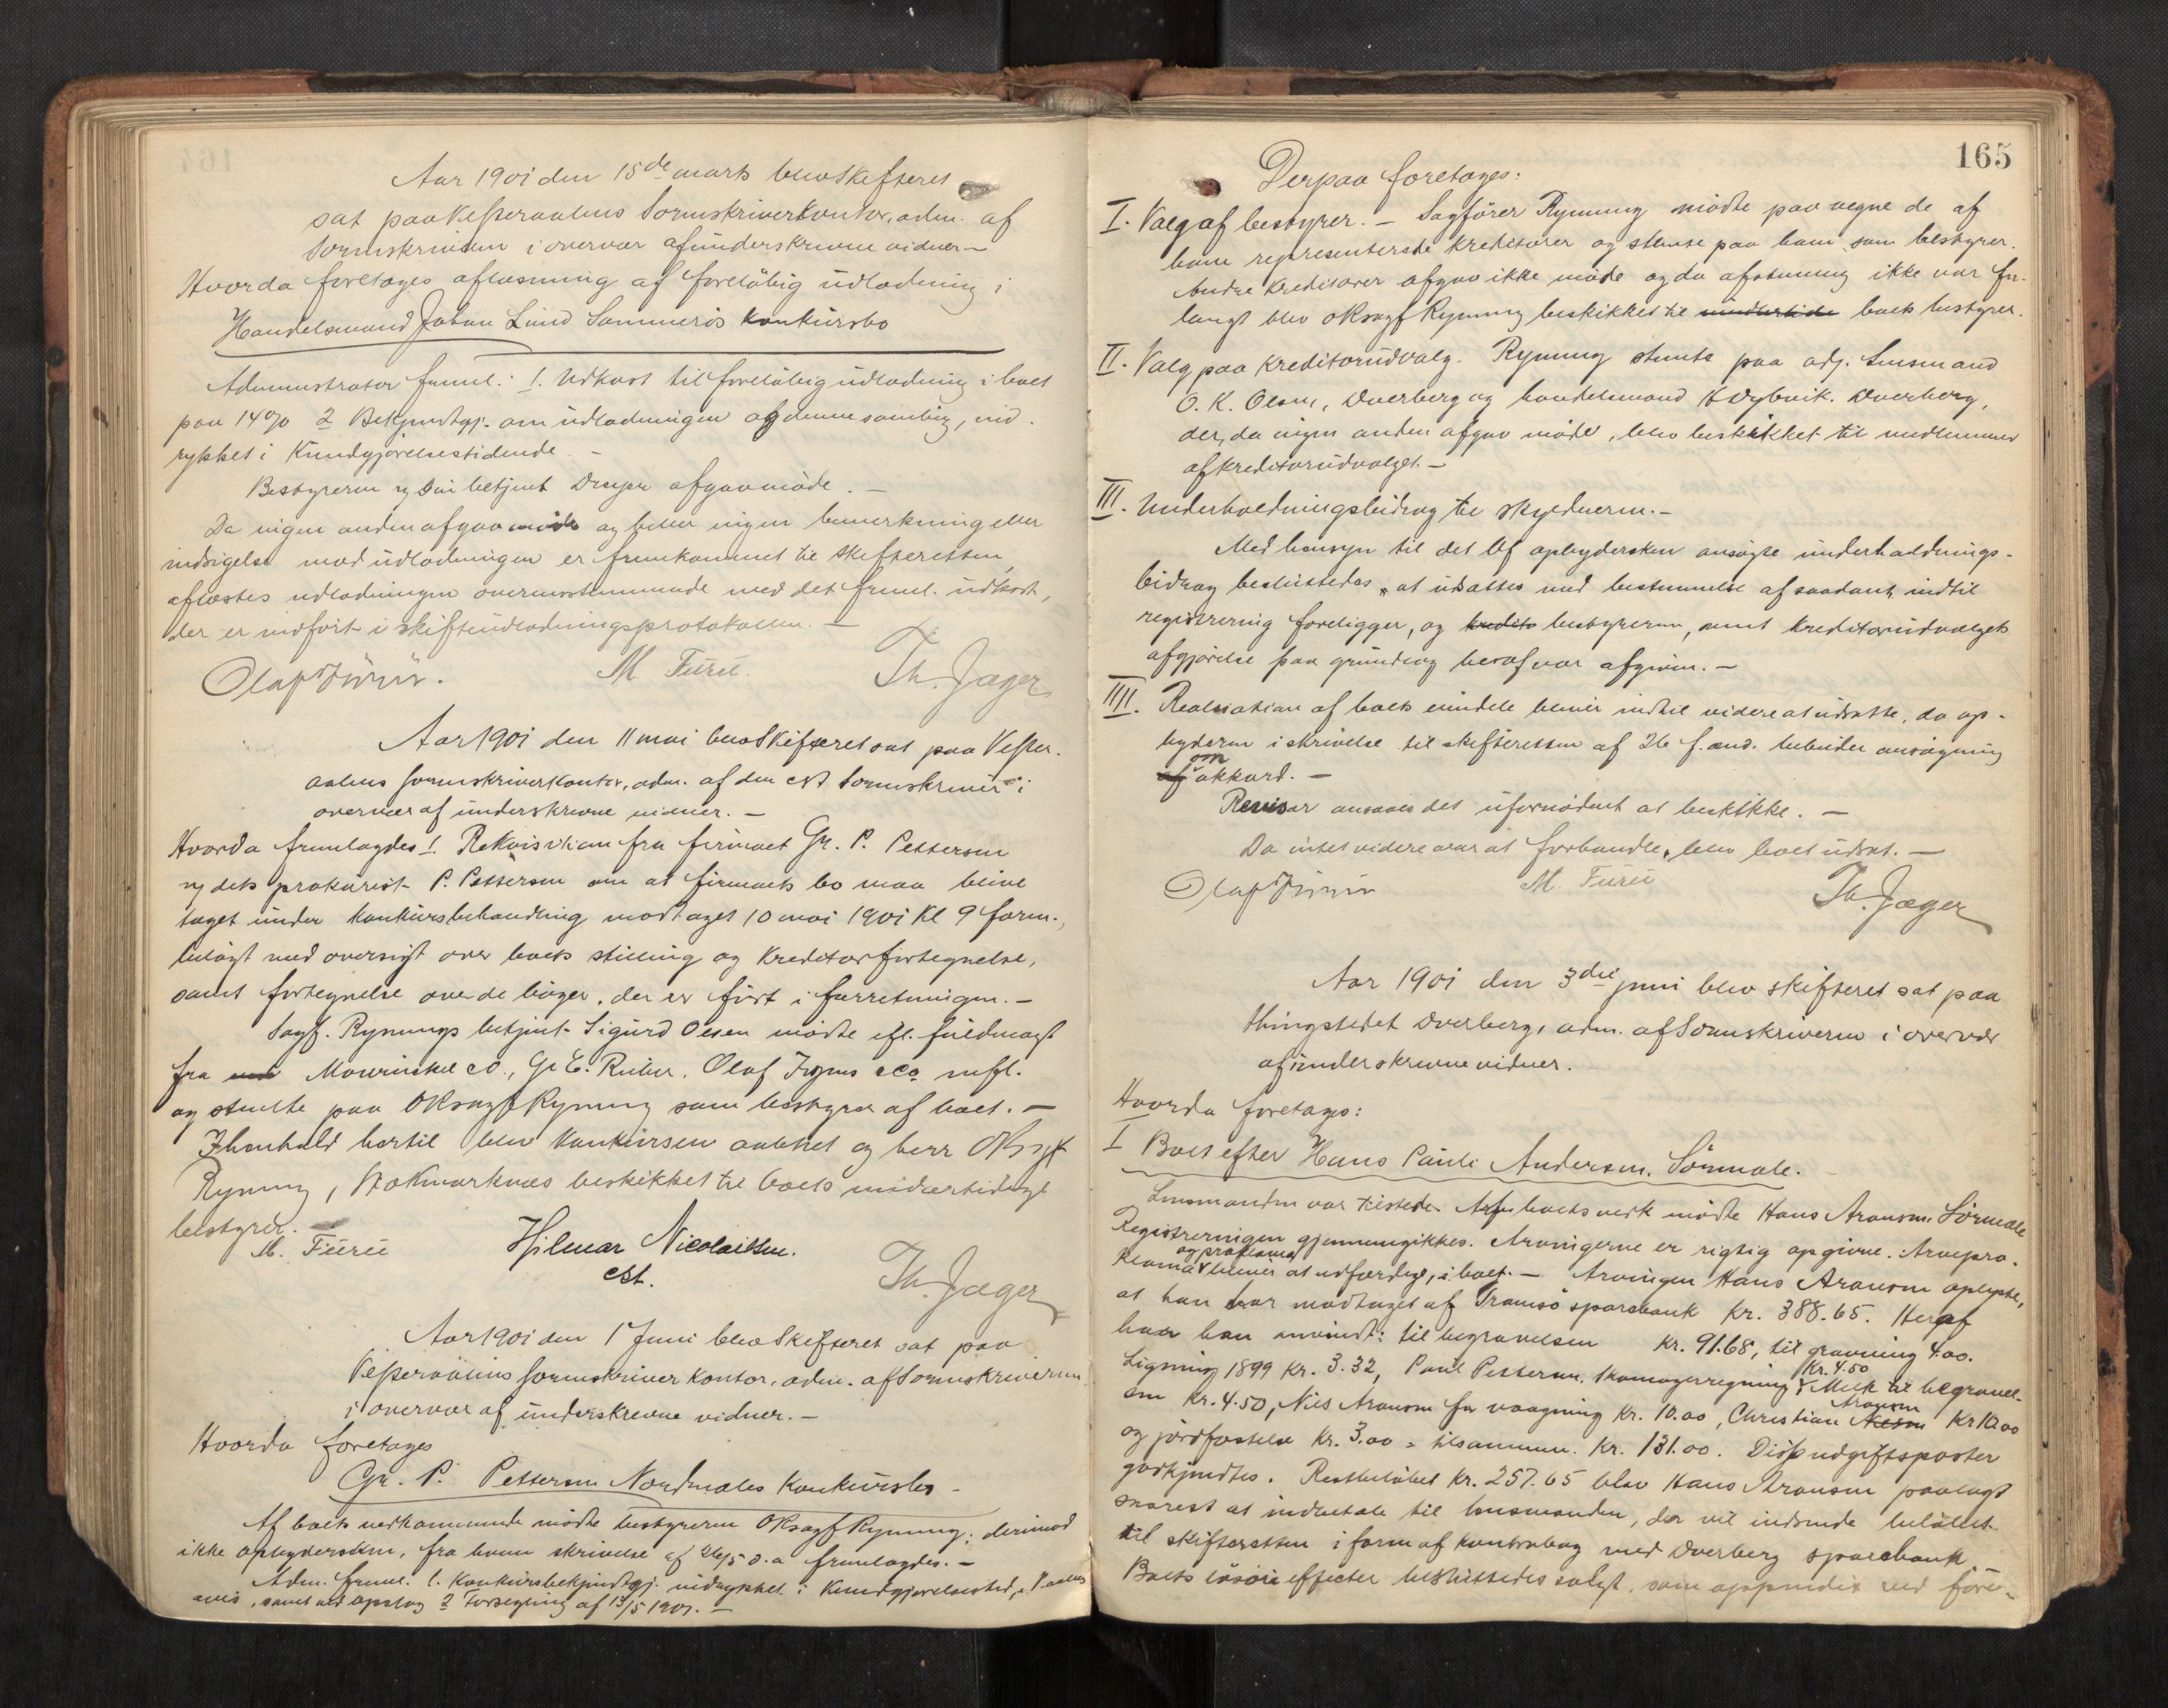 Aar 1901 den 15de marts blev skifteret
sat paa Vesteraalens Sorenskriverkontor, adm. af
Sorenskriveren i overvær af underskrevne vidner. –
Hvorda foretages aflæsning af foreløbig udlodning i
Handelsmand Johan Lund Sommerøs konkursbo
Administrator freml.: 1. Udkast til foreløbig udlodning i boet
paa 14% 2 Bekjendtgj. om udlodningen og denne samling, ind-
rykket i Kundgjørelsestidende. –
Bestyreren v/ sin betjent afgav møde. –
Da ingen anden afgav møde og heller ingen bemerkning eller
indsigelse mod udlodningen er fremkommet til skifteretten,
aflæstes udlodningen overensstemmende med det freml. udkast,
der er indført i skifteudlodningsprotokollen. –
M Furu. Th. Jæger
Aar 1901 den 11 mai blev skifteret sat paa Vester-
aalens sorenskriverkontor, adm. af den cst Sorenskriver i
overvær af underskrevne vidner. –
Hvorda fremlagdes 1. Rekvisition fra firmaet Gr. P. Pettersen
v/ dets prokurist P. Pettersen om at firmaets bo maa blive
taget under konkursbehandling modtaget 10 mai 1901 kl 9 form.,
bilagt med oversigt over boets stilling og kreditorfortegnelse,
samt fortegnelse over de bøger, der er ført i forretningen. –
Sagf. Rynnings betjent Sigurd Olsen mødte ifl. fuldmagt
fra Mowinckel co., Gr E. Rieber, Olaf &co mfl.
og stemte paa ORsagf Rynning som bestyrer af boet. –
I henhold hertil blev konkursen aabnet og herr ORsagf
Rynning, Stokmarknæs beskikket til boets midlertidige
bestyrer. –
M. Furu Hjilmar Nicolaissen. Th. Jæger
cst.
Aar 1901 den 1 Juni blev skifteret sat paa
Vesteraalens sorenskriverkontor, adm. af Sorenskriveren
i overvær af underskrevne vidner. –
Hvorda foretages
Gr. P. Pettersen Nordmeles konkursbo –
Af boets vedkommende mødte bestyreren ORsagf Rynning; derimod
ikke opbyderen, fra hvem skrivelse af 26/5 d.a. fremlagdes. –
Adm. freml. 1. Konkursbekjendtgj. indrykket i Kundgjørelsestid, i V.aalens
avis, samt ved opslag 2 Forsegling af 13/5 1901. –
165
Derpaa foretages:
I. Valg af bestyrer. – Sagfører Rynning mødte paa vegne de af
ham representerede kreditorer og stemte paa ham som bestyrer.
Andre kreditorer afgav ikke møde og da afstemning ikke var for-
langt blev ORsagf Rynning beskikket til midlertide boets bestyrer.
II. Valg paa kreditorudvalg. Rynning stemte paa adj. Lensmand
O. K. Olsen, Dverberg og handelsmand H Dybvik. Dverberg,
der, da ingen anden afgav møde, blev beskikket til medlemmer
af kreditorudvalget. –
III. Underholdningsbidrag til skyldneren. –
Med hensyn til det af opbyderen ansøgte underholdnings-
bidrag besluttedes, at udsættes med bestemmelse af saadant, indtil
registrering foreligger, og kredito bestyreren, samt kreditorudvalgets
afgjørelse paa grundlag heraf var afgiven. –
IIII. Realisation af boets eiendele bliver indtil videre at udsætte, da op-
byderen i skrivelse til skifteretten af 26 f. md. bebuder ansøgning
af om akkord. –
Revisor ansaaes det ufornødent at beskikke. –
Da intet videre var at forhandle, blev boet udsat. –
M. Furu Th. Jæger
Aar 1901 den 3die juni blev skifteret sat paa
thingstedet Dverberg, adm. af Sorenskriveren i overvær
af underskrevne vidner.
Hvorda foretages:
I Boet efter Hans Pauli Andersen, Sørmele.
Lensmanden var tilstede. Af boets vedk mødte Hans Aronsen. Sørmele
Registreringen gjennemgikkes. Arvingerne er rigtig opgivne. Arvepro-
klama og proklama bliver at udfærdige, i boet. – Arvingen Hans Aronsen oplyste,
at han har modtaget af Tromsø sparebank kr. 388.65. Heraf
har han anvendt: til begravelsen kr. 91.68, til gravning 4.00.
Ligning 1899 kr. 3.32, Paul Pettersen, skomagerregning kr. 4.50 Melk til begravel-
sen kr. 4.50, Nils Aronsen for vaagning kr. 10.00, Christian Nilsen Aronsen kr 10.00
og jordfæstelse kr. 3.00 = tilsammen kr. 131.00. Disse udgiftsposter
godkjendtes. Restbeløbet kr. 257.65 blev Hans Aronsen paalagt
snarest at indbetale til lensmanden, der vil indsende beløbet
til skifteretten i form af kontrabog med Dverberg sparebank. –
Boets løsøreeffecter besluttedes solgt, som appendix ved føre-